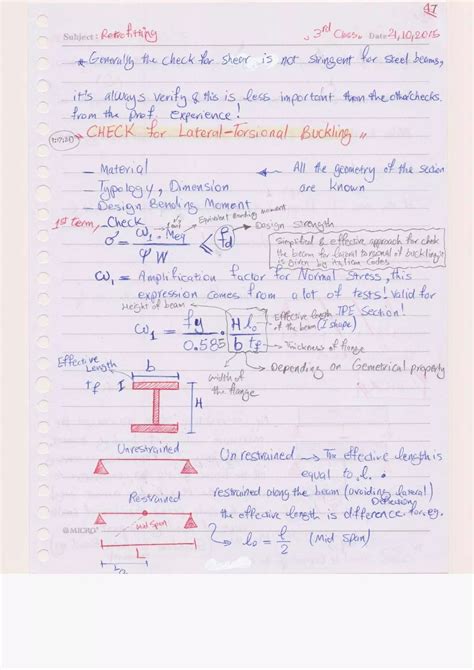 47
Subject: Retrofitting „3rd Class„ Date: 21,10,2015
* Generally the check for shear is not stringent for steel beams,
it's always verify & this is less important than the other checks.
from the Prof. experience!
CHECK for Lateral-Torsional Buckling „
_ Material
_ Typology, Dimension
_ Design Bending Moment
All the geometry of the section
are known
1st term, Check
Equivalent Bending moment
Design strength
σ = ω1 . Meq / ψ W ≤ fd
Simplified & effective approach for check
the beam for lateral torsional of buckling it
is given by Italian Codes
ω1 = Amplification factor for Normal Stress, this
expression comes from a lot of tests! Valid for
IPE Section!
Height of beam
Effective length
of the beam (I shape)
ω1 = fy / 0.585 . H lo / b tf
Thickness of flange
width of
the flange
Depending on Gemetrical property
Effective
Length
b
tf I
H
Unrestrained
Unrestrained → The effective length is
equal to l.
Restrained
restrained along the beam (avoiding lateral)
Deflection
mid span
the effective length is difference for eg.
lo = l/2 (Mid span)
MICRO
L